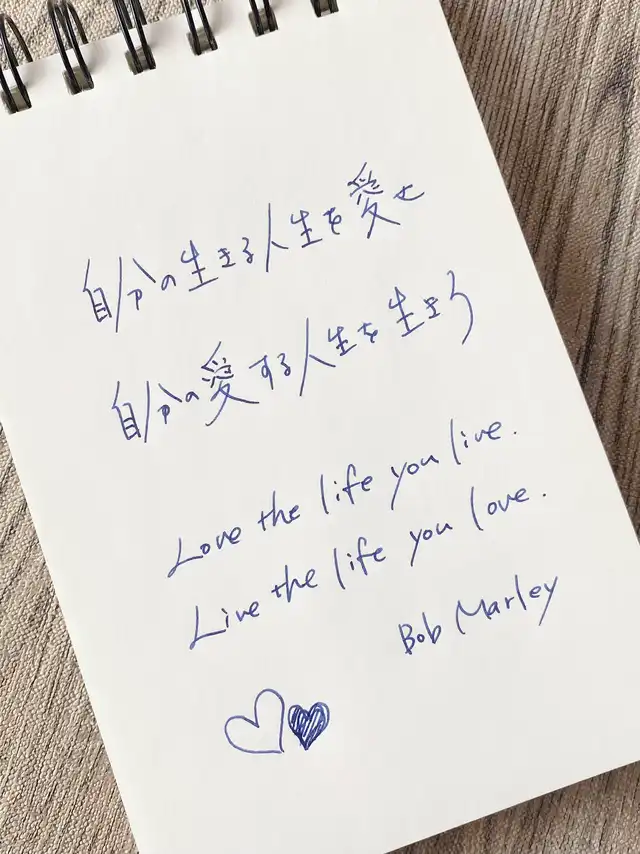 自分の生きる人生を愛せ
自分の愛する人生を生きろ
Love the life you live.
Live the life you love.
Bob Marley